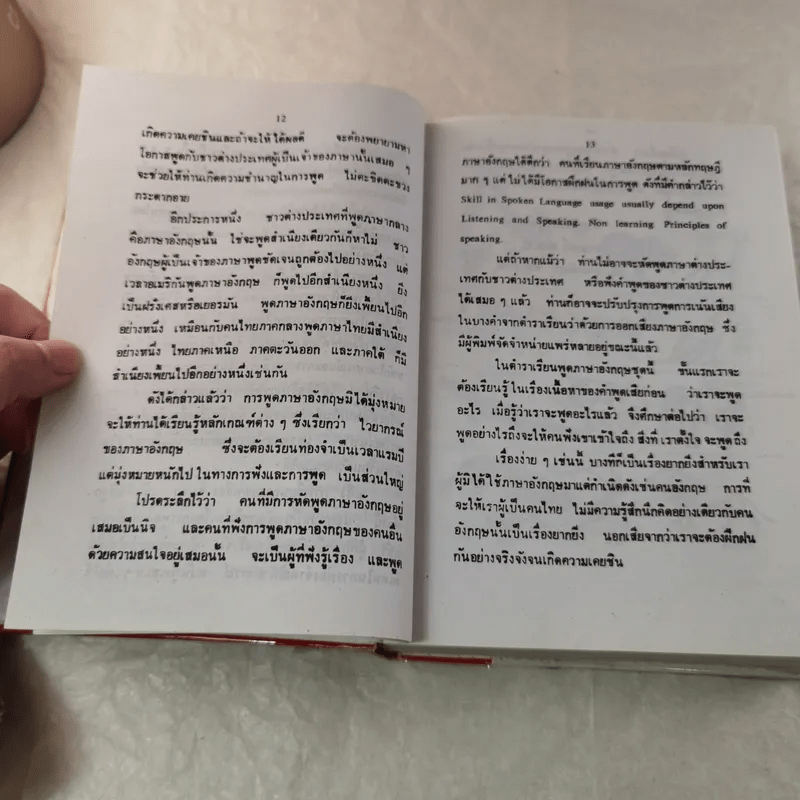 12
เกิดความเคยชินและถ้าจะให้ได้ผลดี จะต้องพยายามหา
โอกาสพูดกับชาวต่างประเทศผู้เป็นเจ้าของภาษานั้นเสมอ ๆ
จะช่วยให้ท่านเกิดความชำนาญในการพูด ไม่ตะขิดตะขวง
กระดากอาย
อีกประการหนึ่ง ชาวต่างประเทศที่พูดภาษากลาง
คือภาษาอังกฤษนั้น ใช่จะพูดสำเนียงเดียวกันก็หาไม่ ชาว
อังกฤษผู้เป็นเจ้าของภาษาพูดชัดเจนถูกต้องไปอย่างหนึ่ง แต่
เวลาอเมริกันพูดภาษาอังกฤษ ก็พูดไปอีกสำเนียงหนึ่ง ยิ่ง
เป็นฝรั่งเศสหรือเยอรมัน พูดภาษาอังกฤษก็ยิ่งเพี้ยนไปอีก
อย่างหนึ่ง เหมือนกับคนไทยภาคกลางพูดภาษาไทยมีสำเนียง
อย่างหนึ่ง ไทยภาคเหนือ ภาคตะวันออก และภาคใต้ ก็มี
สำเนียงเพี้ยนไปอีกอย่างหนึ่งเช่นกัน
ดังได้กล่าวแล้วว่า การพูดภาษาอังกฤษมิได้มุ่งหมาย
จะให้ท่านได้เรียนรู้หลักเกณฑ์ต่าง ๆ ซึ่งเรียกว่า ไวยากรณ์
ของภาษาอังกฤษ ซึ่งจะต้องเรียนท่องจำเป็นเวลาแรมปี
แต่มุ่งหมายหนักไปในทางการฟังและการพูด เป็นส่วนใหญ่
โปรดระลึกไว้ว่า คนที่มีการหัดพูดภาษาอังกฤษอยู่
เสมอเป็นนิจ และคนที่ฟังการพูดภาษาอังกฤษของคนอื่น
ด้วยความสนใจอยู่เสมอนั้น จะเป็นผู้ที่ฟังรู้เรื่อง และพูด
13
ภาษาอังกฤษได้ดีกว่า คนที่เรียนภาษาอังกฤษตามหลักทฤษฎี
มาก ๆ แต่ ไม่ได้มีโอกาสฝึกฝนในการพูด ดังที่มีคำกล่าวไว้ว่า
Skill in Spoken Language usage usually depend upon
Listening and Speaking. Non learning Principles of
speaking.
แต่ถ้าหากแม้ว่า ท่านไม่อาจจะหัดพูดภาษาต่างประ-
เทศกับชาวต่างประเทศ หรือฟังคำพูดของชาวต่างประเทศ
ได้เสมอ ๆ แล้ว ท่านก็อาจจะปรับปรุงการพูดการเน้นเสียง
ในบางคำจากตำราเรียนว่าด้วยการออกเสียงภาษาอังกฤษ ซึ่ง
มีผู้พิมพ์จัดจำหน่ายแพร่หลายอยู่ขณะนี้แล้ว
ในตำราเรียนพูดภาษาอังกฤษชุดนี้ ขั้นแรกเราจะ
ต้องเรียนรู้ ในเรื่องเนื้อหาของคำพูดเสียก่อน ว่าเราจะพูด
อะไร เมื่อรู้ว่าเราจะพูดอะไรแล้ว จึงศึกษาต่อไปว่า เราจะ
พูดอย่างไรถึงจะให้คนฟังเขาเข้าใจถึง สิ่งที่ เราตั้งใจ จะพูด ถึง
เรื่องง่าย ๆ เช่นนี้ บางทีก็เป็นเรื่องยากยิ่งสำหรับเรา
ผู้มิได้ใช้ภาษาอังกฤษมาแต่กำเนิดดังเช่นคนอังกฤษ การที่
จะให้เราผู้เป็นคนไทย ไม่มีความรู้สึกนึกคิดอย่างเดียวกับคน
อังกฤษนั้นเป็นเรื่องยากยิ่ง นอกเสียจากว่าเราจะต้องฝึกฝน
กันอย่างจริงจังจนเกิดความเคยชิน